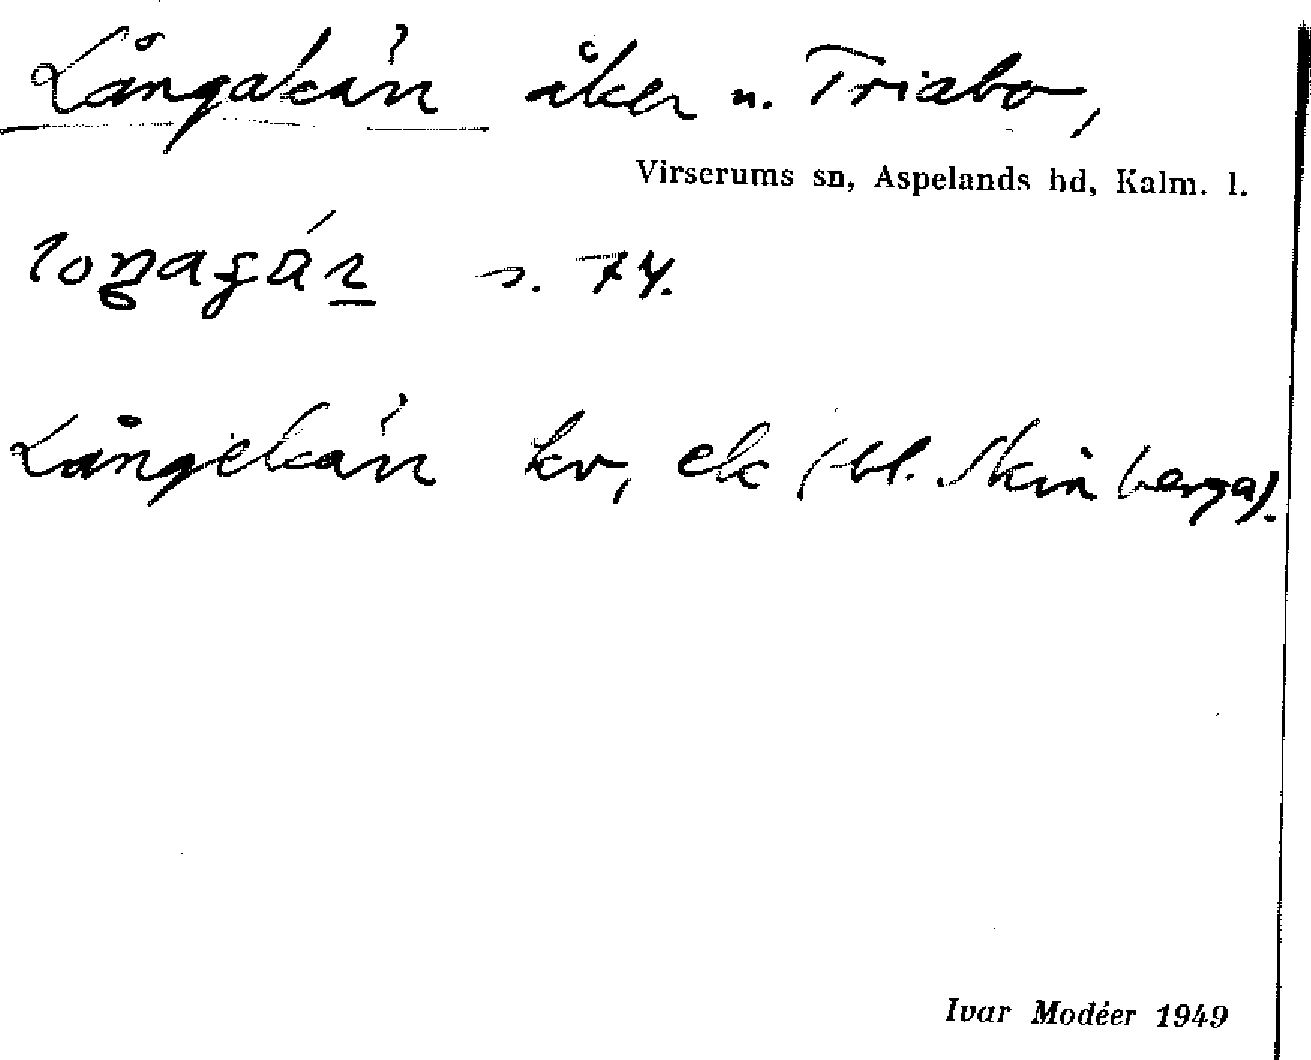 Långakärr åker n. Triabo,
Virserums sn, Aspelands hd, Kalm. l.
s. 74.
kv, ek (bl. Skinberga).
Ivar Modéer 1949